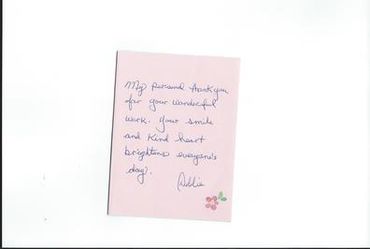 My personal thank you
for your wonderful
work. Your smile
and kind heart
brightens everyone's
day!
Debbie